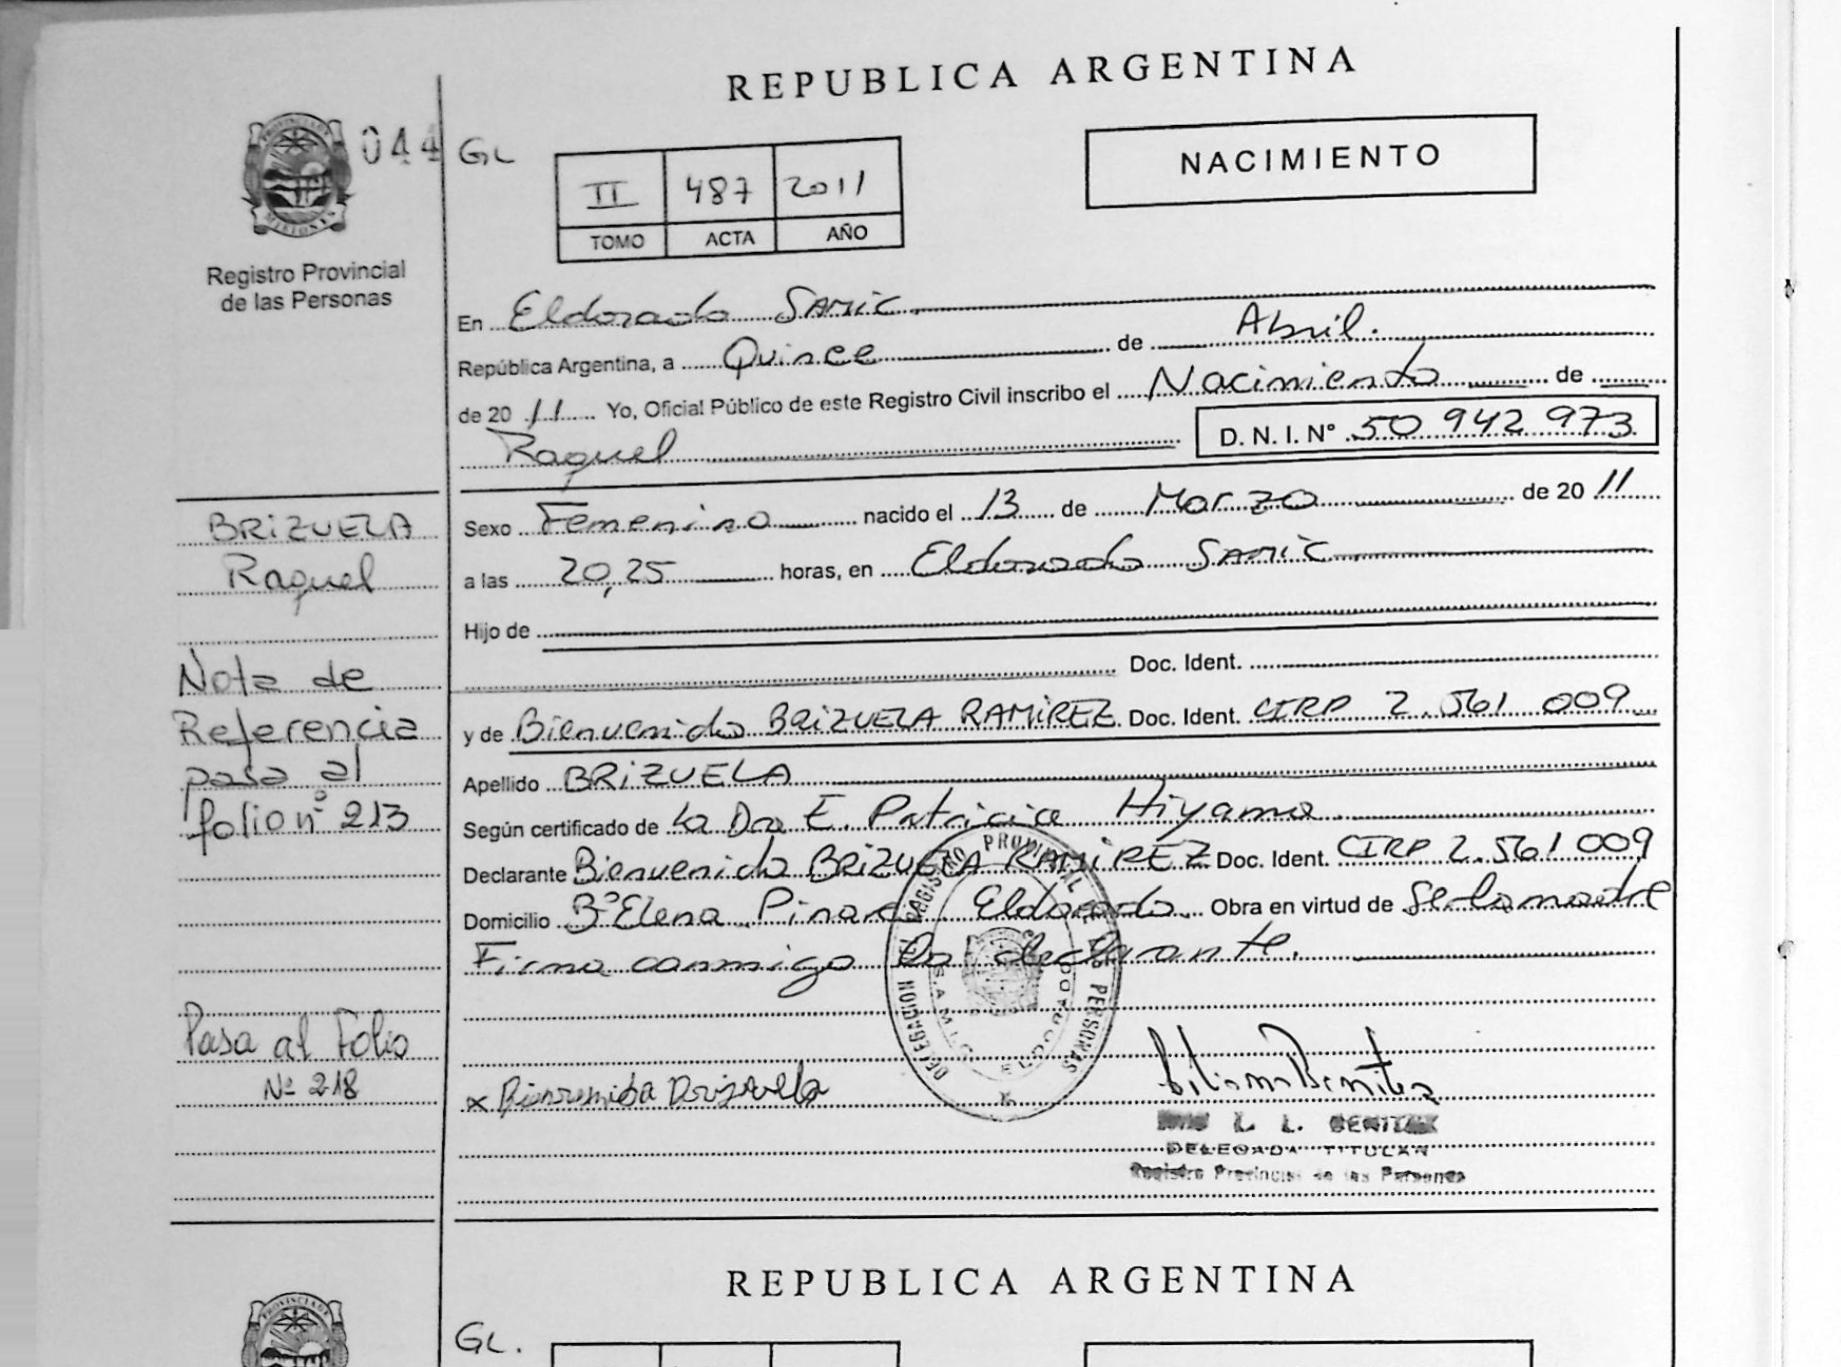 REPUBLICA ARGENTINA
PROVINCIA DE
MISIONES
044
GL
II 487 2011
TOMO ACTA AÑO
NACIMIENTO
Registro Provincial
de las Personas
En Eldorado SAMIC
República Argentina, a Quince de Abril.
de 20 11 Yo, Oficial Público de este Registro Civil inscribo el Nacimiento de
Raquel D. N. I. N° 50 942 973
Sexo Femenino nacido el 13 de Marzo de 20 11
a las 20,25 horas, en Eldorado SAMIC
Hijo de
Doc. Ident.
y de Bienvenida BRIZUELA RAMIREZ Doc. Ident. CIRP 2.561 009
Apellido BRIZUELA
Según certificado de la Dra E. Patricia Hiyama
Declarante Bienvenida BRIZUELA RAMIREZ Doc. Ident. CIRP 2.561 009
Domicilio B° Elena Pinar Eldorado Obra en virtud de Ser la madre
Firma conmigo la declarante.
BRIZUELA
Raquel
Nota de
Referencia
pasa al
folio n° 213
Pasa al Folio
Nº 218
x Bienvenida Brizuela
REGISTRO PROVINCIAL DE LAS PERSONAS
DELEGACION
S.A.M.I.C. ELDORADO
Liliana Benitez
L. L. BENITEZ
DELEGADA TITULAR
Registro Provincial de las Personas
REPUBLICA ARGENTINA
PROVINCIA DE
GL.